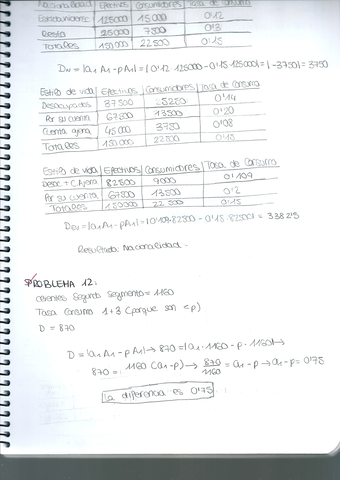 Nacionalidad Efectivos Consumidores Tasa de consumo
Estadounidenses 125000 15000 0'12
Resto 25000 7500 0'3
Totales 150000 22500 0'15
DN = |a1 A1 - p A1| = |0'12·125000 - 0'15·125000| = |-3750| = 3750
Estilo de vida Efectivos Consumidores Tasa de consumo
Desocupados 37500 5250 0'14
Por su cuenta 67500 13500 0'20
Cuenta ajena 45000 3750 0'08
Totales 150.000 22500 0'15
Estilo de vida Efectivos Consumidores Tasa de Consumo
Desoc + C.Ajena 82500 9000 0'109
Por su cuenta 67500 13500 0'2
Totales 150000 22500 0'15
DEV = |a1 A1 - p A1| = |0'109·82500 - 0'15·82500| = 3382'5
Resultado: Nacionalidad.
PROBLEMA 12:
Clientes Segundo Segmento = 1160
Tasa Consumo 1+3 (porque son <p)
D = 870
D = |a1 A1 - p A1| → 870 = |a1·1160 - p·1160| →
870 = 1160 (a1 - p) → 870/1160 = a1 - p → a1 - p = 0'75
La diferencia es 0'75.